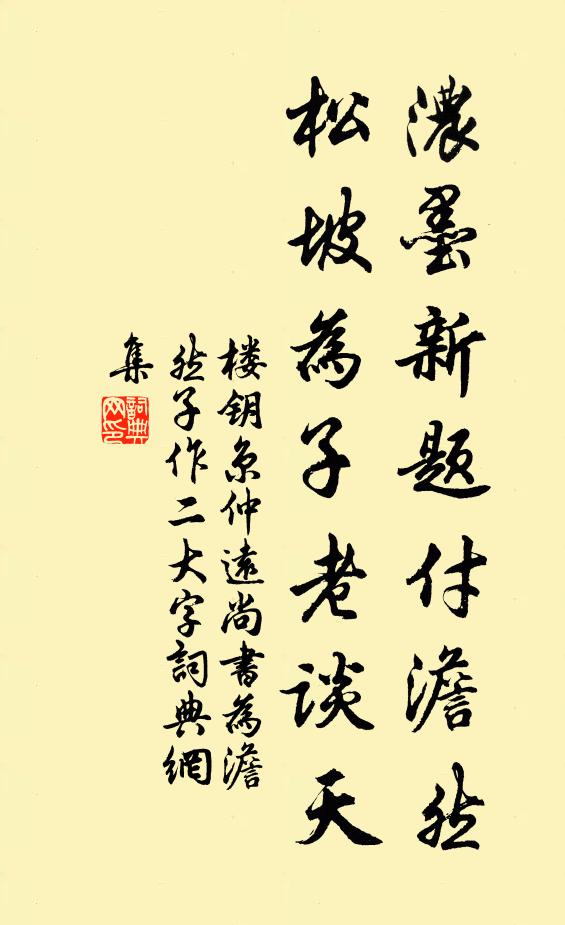 濃墨新題付澹然
松坡為子老談天
楼钥京仲遠尚書為澹
然子作二大字詞典網
集
詞典
网印